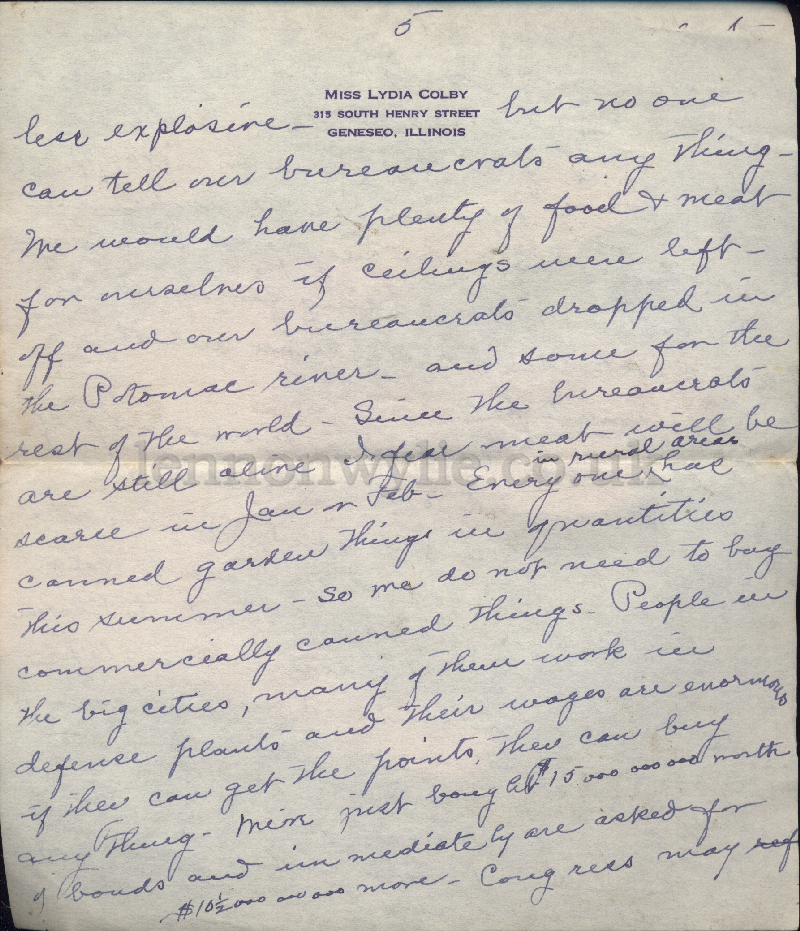 5
MISS LYDIA COLBY
315 SOUTH HENRY STREET
GENESEO, ILLINOIS
less explosive - but no one
can tell our bureaucrats any thing -
We would have plenty of food & meat
for ourselves if ceilings were left -
off and our bureaucrats dropped in
the Potomac river - and some for the
rest of the world - Since the bureaucrats
are still alive I fear meat will be
scarce in Jan or Feb - Every one in rural areas has
canned garden things in quantities
this summer - So we do not need to buy
commercially canned things - People in
the big cities, many of them work in
defense plants and their wages are enormous
if they can get the points, they can buy
any thing - We've just bought $15 000 000 000 worth
of bonds and immediately are asked for
$10½ 000 000 000 more - Congress may
lennonwylie.co.uk